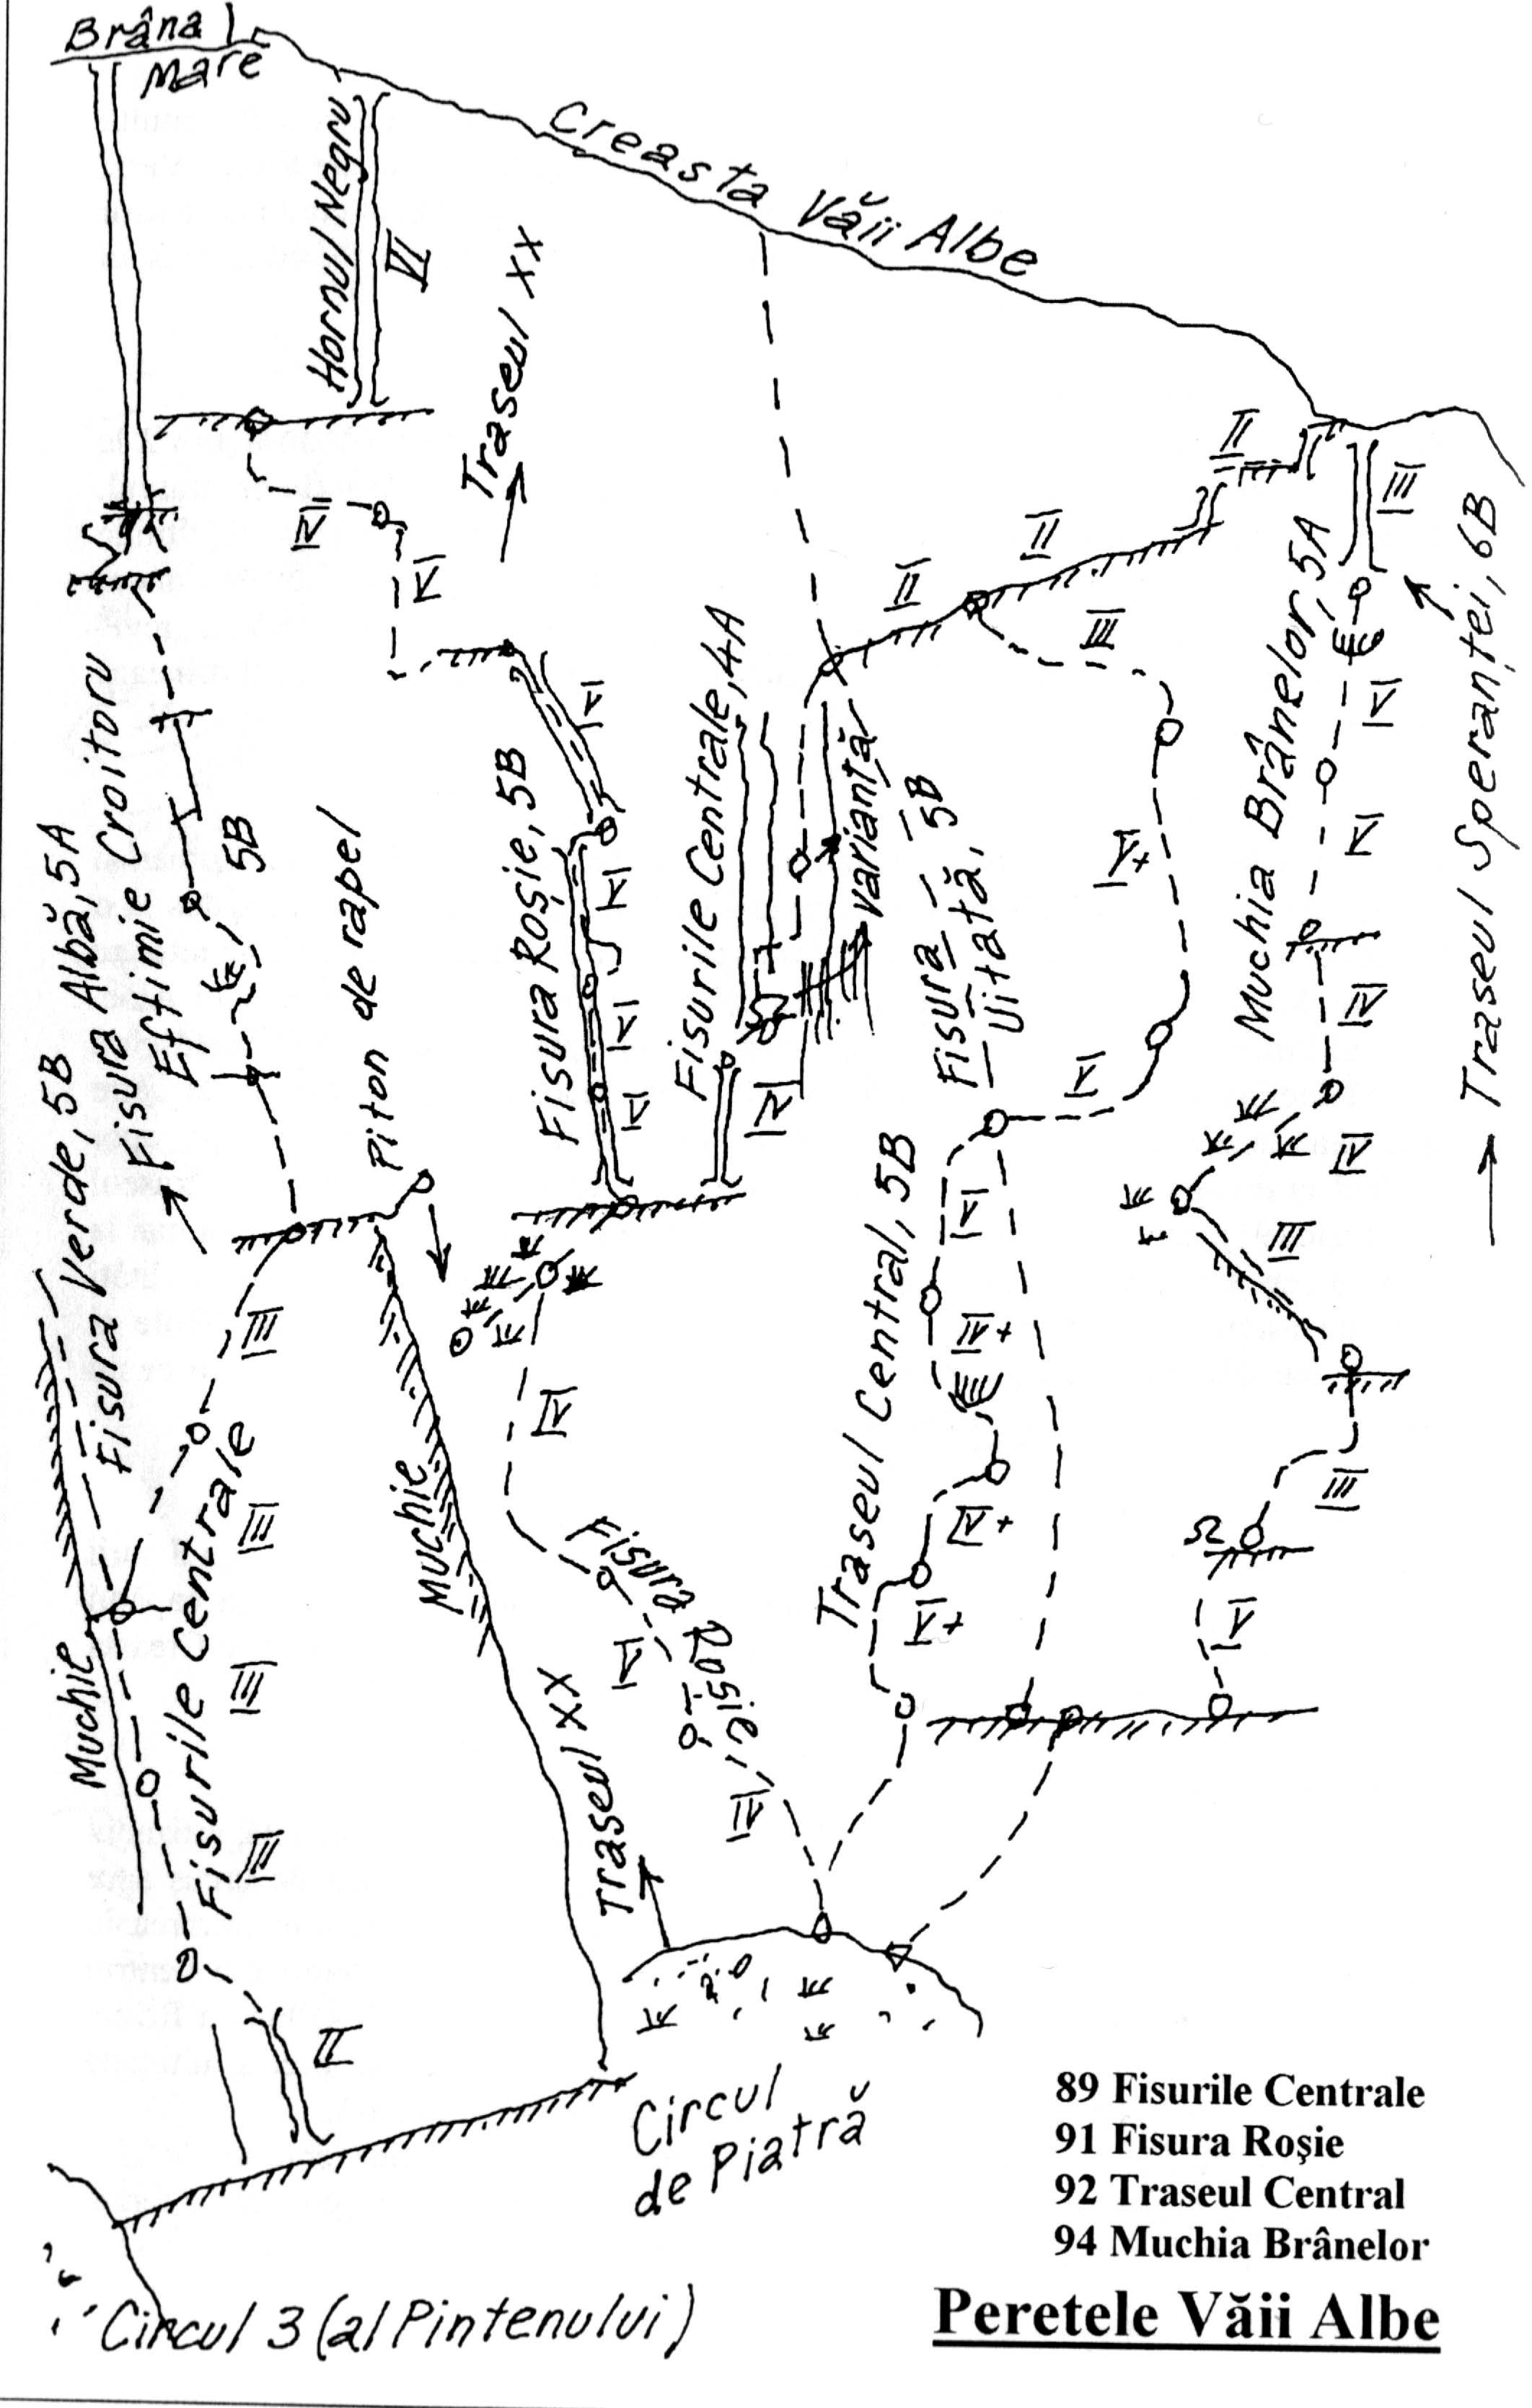 Brâna
Mare
Creasta Văii Albe
Hornul Negru
VI
Traseul XX
IV
V
II
II
II
III
III
VI
VI
V
V
Fisura Roșie, 5B
Fisurile Centrale, 4A
IV
variantă
Fisura
Uitată, 5B
V+
V
Muchia Brânelor, 5A
V
V
IV
IV
III
III
V
Traseul Speranței, 6B
Fisura Albă, 5A
Fisura Verde, 5B
Fisura Croitoru
Eftimie
5B
Piton de rapel
III
III
III
III
II
Fisurile Centrale
Muchie
Muchie
IV
Fisura Roșie,
V
IV
Traseul XX
Traseul Central, 5B
VI
IV+
IV+
V+
Circul
de Piatră
Circul 3 (al Pintenului)
89 Fisurile Centrale
91 Fisura Roşie
92 Traseul Central
94 Muchia Brânelor
Peretele Văii Albe